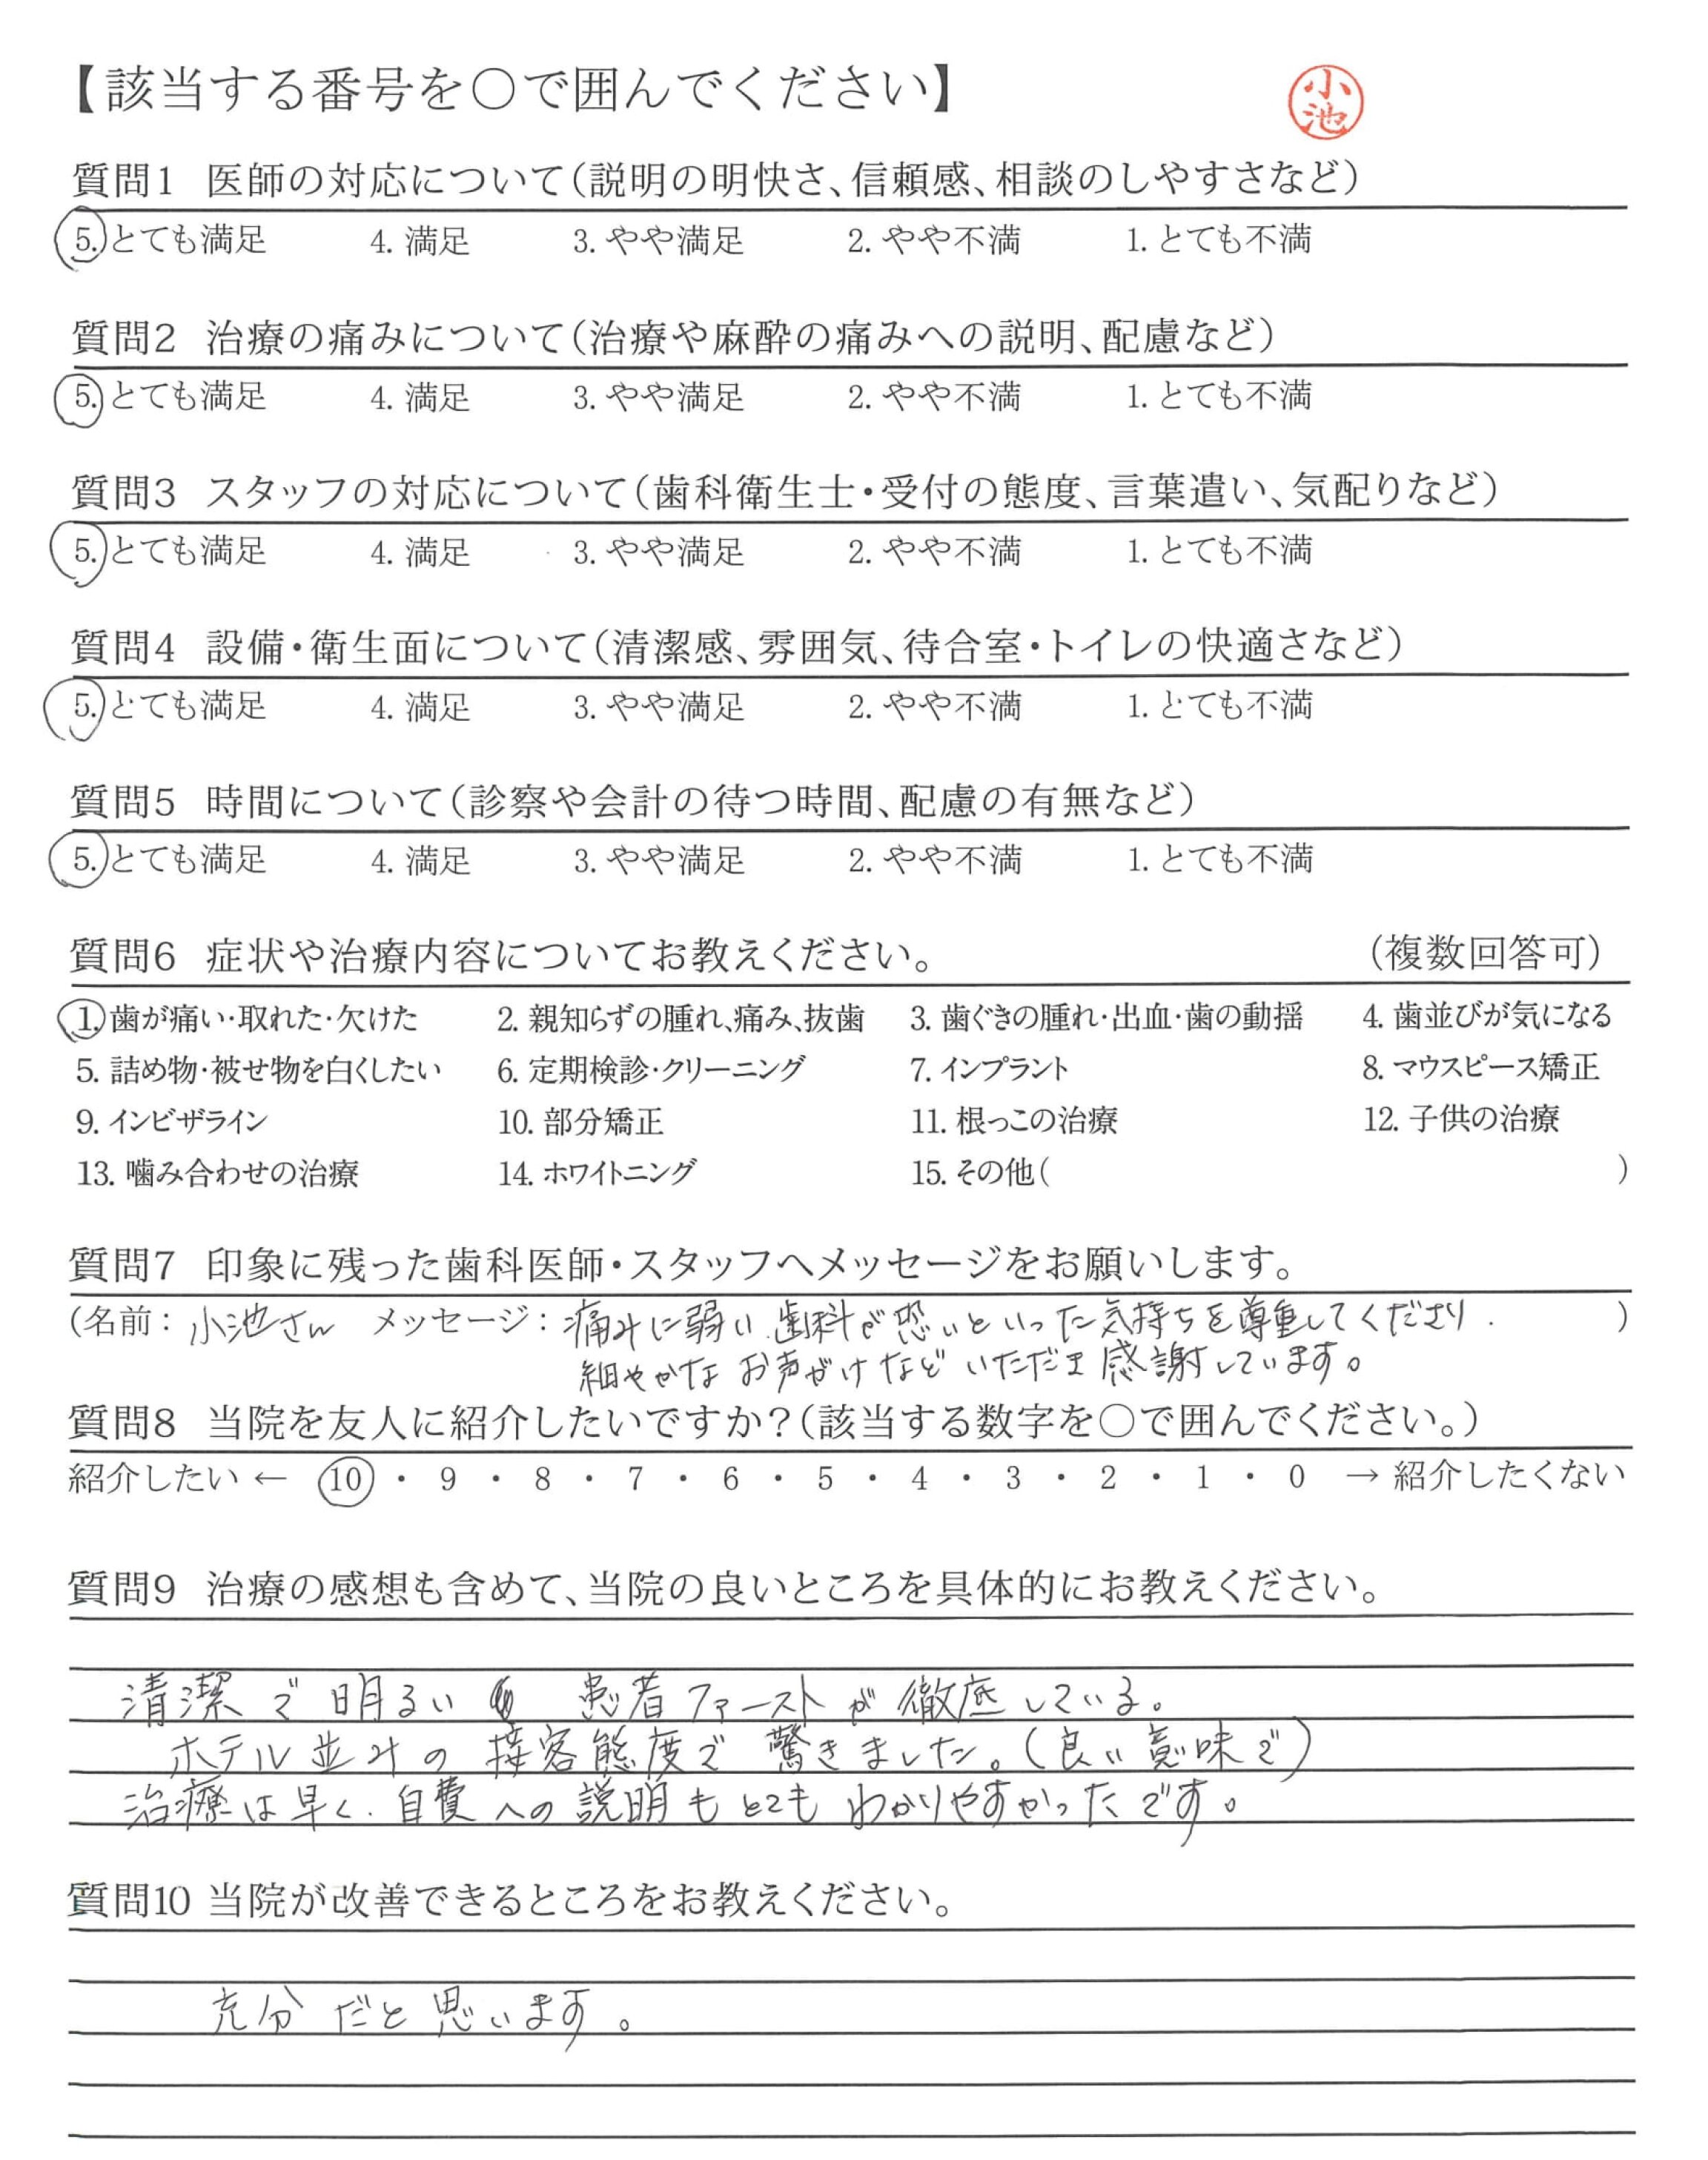 【該当する番号を○で囲んでください】
小池
質問1 医師の対応について(説明の明快さ、信頼感、相談のしやすさなど)
5. とても満足 4. 満足 3. やや満足 2. やや不満 1. とても不満
質問2 治療の痛みについて(治療や麻酔の痛みへの説明、配慮など)
5. とても満足 4. 満足 3. やや満足 2. やや不満 1. とても不満
質問3 スタッフの対応について(歯科衛生士・受付の態度、言葉遣い、気配りなど)
5. とても満足 4. 満足 3. やや満足 2. やや不満 1. とても不満
質問4 設備・衛生面について(清潔感、雰囲気、待合室・トイレの快適さなど)
5. とても満足 4. 満足 3. やや満足 2. やや不満 1. とても不満
質問5 時間について(診察や会計の待つ時間、配慮の有無など)
5. とても満足 4. 満足 3. やや満足 2. やや不満 1. とても不満
質問6 症状や治療内容についてお教えください。 (複数回答可)
1. 歯が痛い・取れた・欠けた 2. 親知らずの腫れ、痛み、抜歯 3. 歯ぐきの腫れ・出血・歯の動揺 4. 歯並びが気になる
5. 詰め物・被せ物を白くしたい 6. 定期検診・クリーニング 7. インプラント 8. マウスピース矯正
9. インビザライン 10. 部分矯正 11. 根っこの治療 12. 子供の治療
13. 噛み合わせの治療 14. ホワイトニング 15. その他( )
質問7 印象に残った歯科医師・スタッフへメッセージをお願いします。
(名前: 小池さん メッセージ: 痛みに弱い、歯科が恐いといった気持ちを尊重してくださり、 )
細やかなお声がけなどいただき感謝しています。
質問8 当院を友人に紹介したいですか?(該当する数字を○で囲んでください。)
紹介したい ← 10 ・ 9 ・ 8 ・ 7 ・ 6 ・ 5 ・ 4 ・ 3 ・ 2 ・ 1 ・ 0 → 紹介したくない
質問9 治療の感想も含めて、当院の良いところを具体的にお教えください。
清潔で明るい 患者ファーストが徹底している。
ホテル並みの接客態度で驚きました。(良い意味で)
治療は早く、自費への説明もとてもわかりやすかったです。
質問10 当院が改善できるところをお教えください。
充分だと思います。